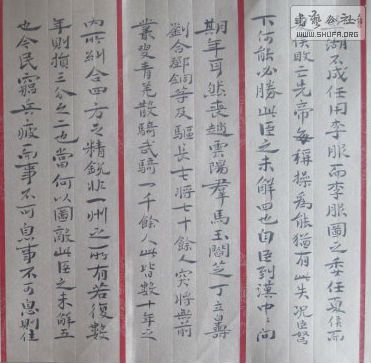 湖不成任用李服而李服圖之委任夏侯而
侯敗亡先帝每稱操為能猶有此失况臣駑
下何能必勝此臣之未解四也自臣到漢中中間
期年耳然喪趙雲陽羣馬玉閻芝丁立白壽
劉合鄧銅等及驅長屯將七十餘人突將無前
叢叟青羌散騎武騎一千餘人此皆數十年之
內所糾合四方之精銳非一州之所有若復數
年則損三分之二也當何以圖敵此臣之未解五
也今民窮兵疲而事不可息事不可息則住
WWW.SHUFA.ORG